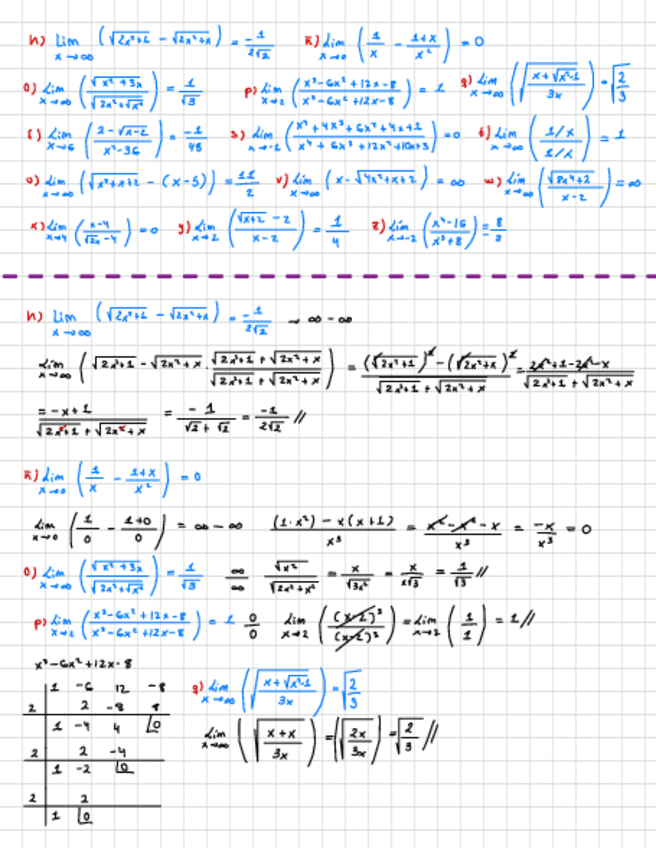 n) Lim x→∞ (√(2x²+1) − √(2x²+x)) = −1/(2√2)   ñ) Lim x→0 (1/x − (1+x)/x²) = 0
o) Lim x→∞ (√(x²+3x)/√(2x²+√x²)) = 1/√3   p) Lim x→2 ((x³−6x²+12x−8)/(x³−6x²+12x−8)) = 1   q) Lim x→∞ (√((x+√(x²-1))/3x)) = √(2/3)
r) Lim x→6 ((2−√(x−2))/(x²−36)) = −1/48   s) Lim x→−1 ((x⁴+4x³+6x²+4x+1)/(x⁴+6x³+12x²+10x+3)) = 0   t) Lim x→∞ ((1/x)/(1/x)) = 1
u) Lim x→∞ (√(x²+x+2) − (x−5)) = 11/2   v) Lim x→∞ (x−√(4x²+x+2)) = ∞   w) Lim x→∞ (/(x−2)) = ∞
x) Lim x→4 ((x−4)/(√2x −4)) = 0   y) Lim x→2 ((√(x+2) −2)/(x−2)) = 1/4   z) Lim x→−2 ((x⁴−16)/(x³+8)) =
n) Lim x→∞ (√(2x²+1) − √(2x²+x)) = −1/(2√2) → ∞ − ∞
Lim x→∞ (√(2x²+1) − √(2x²+x) · (√(2x²+1) + √(2x²+x))/(√(2x²+1) + √(2x²+x))) = ((√(2x²+1))² − (√(2x²+x))²)/(√(2x²+1) + √(2x²+x)) = (2x²+1−2x²−x)/(√(2x²+1) + √(2x²+x))
= (−x+1)/(√(2x²+1) + √(2x²+x)) = −1/(√2+√2) = −1/(2√2) //
ñ) Lim x→0 (1/x − (1+x)/x²) = 0
Lim x→0 (1/0 − (1+0)/0) = ∞ − ∞   ((1·x²) − x(x+1))/x³ = (x²−x²−x)/x³ = −x/x³ = 0
o) Lim x→∞ (√(x²+3x)/√(2x²+√x²)) = 1/√3   ∞/∞   √x²/√(2x²+x²) = x/√3x² = x/(x√3) = 1/√3 //
p) Lim x→2 ((x³−6x²+12x−8)/(x³−6x²+12x−8)) = 1   0/0   Lim x→2 ((x−2)³/(x−2)³) = Lim x→2 (1/1) = 1 //
x³−6x²+12x−8
1 −6 12 −8
2 2 −8 8
1 −4 4 0
2 2 −4
1 −2 0
2 2
1 0
q) Lim x→∞ (√((x+√(x²-1))/3x)) = √(2/3)
Lim x→∞ (√((x+x)/3x)) = (√(2x/3x)) = √(2/3) //